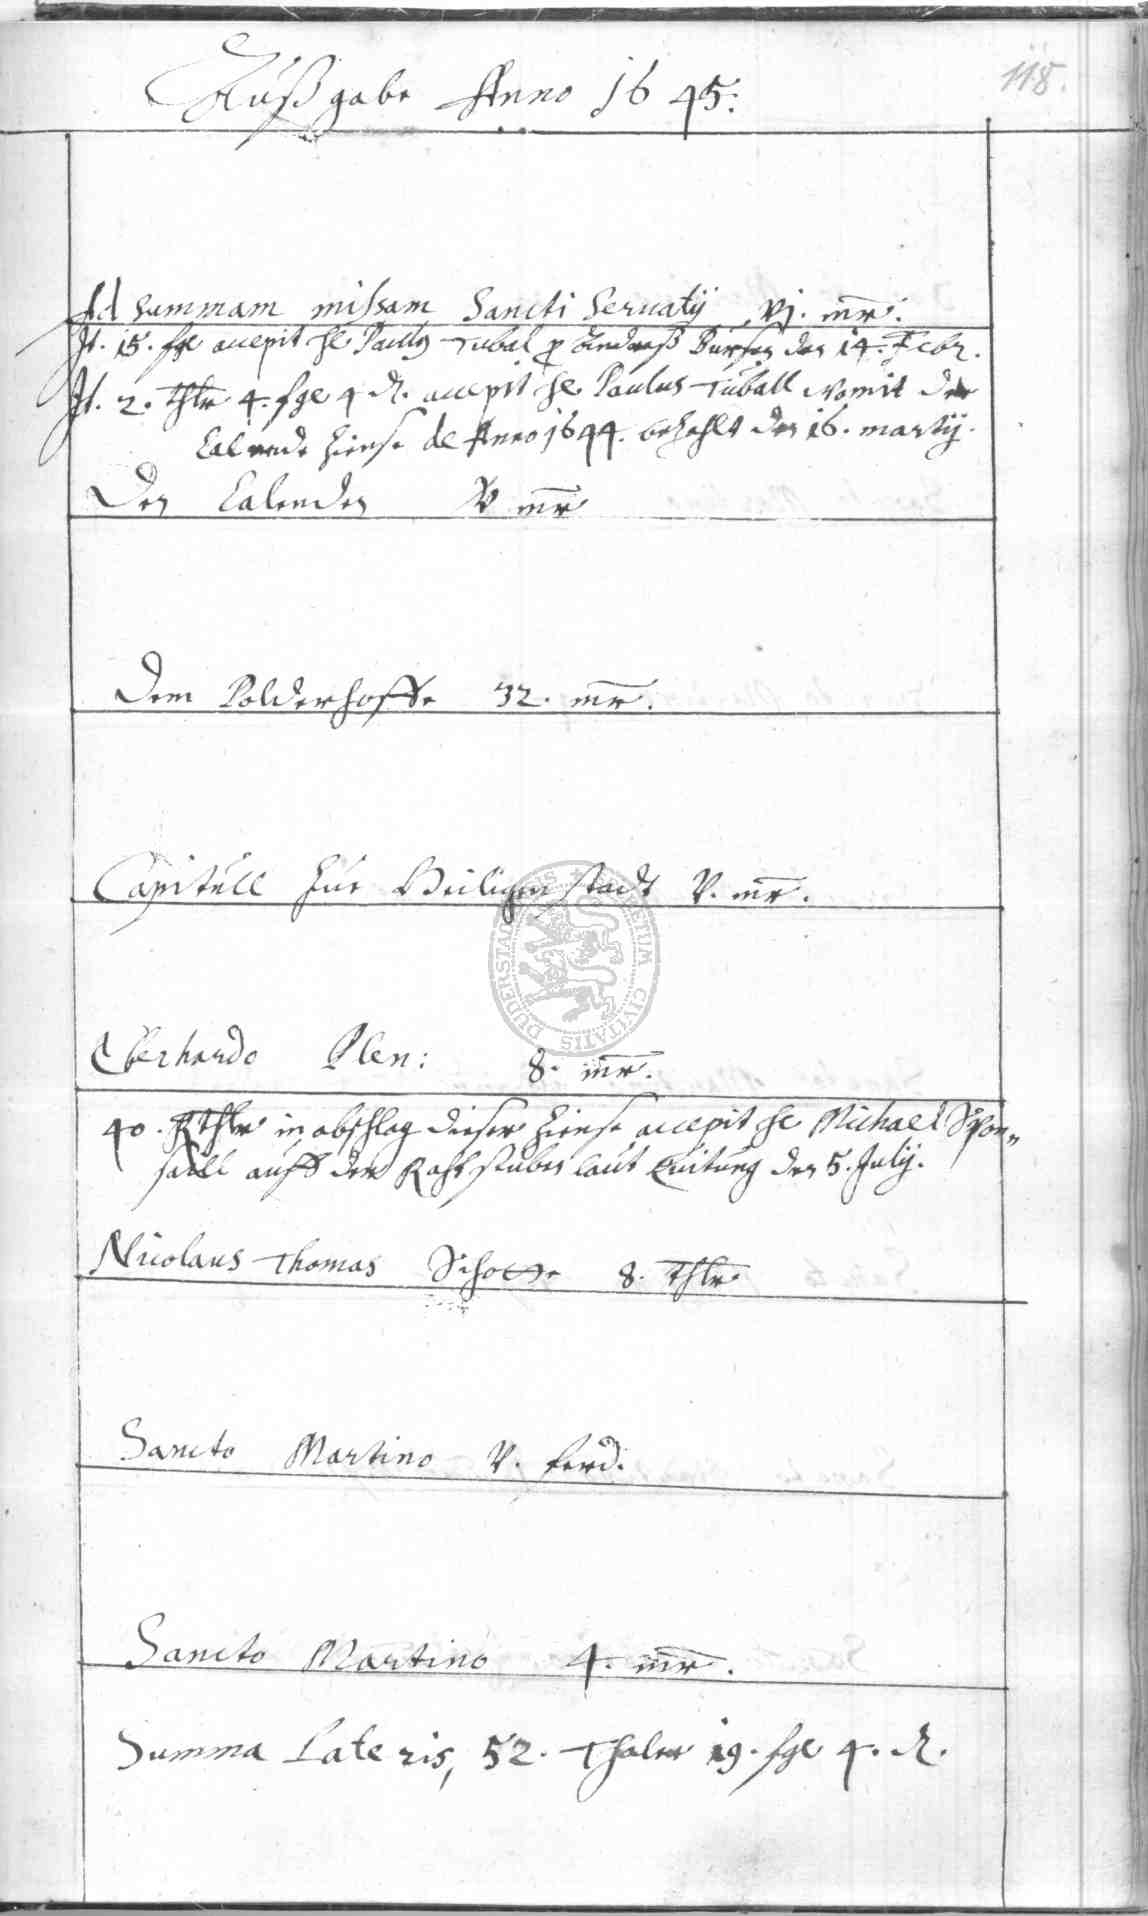 Außgabe Anno 1645:
118.
Ad summam missam Sancti Servatij vj. mr.
It. 15. sgr accepit H Paull Tubal p Andreß den 14. Febr.
It. 2. Thlr 4. sgr 4 d. accepit H Paulus Tuball womit der
Calende Zinse de Anno 1644. bezahlt den 16. martij.
Den Calenden V mr
Dem Polderhoffe 32. mr.
Capitull zur Heiligenstadt V. mr.
Eberhardo Plen: 8. mr.
40. Rthlr in abschlag dieser Zinse accepit H Michael Spon„
sall auff der Rahtstuben laut Quitung den 5. July.
Nicolaus Thomas Schotte 8. Thlr
Sancto Martino V. ferd.
Sancto Martino 4. mr.
Summa Lateris, 52. Thaler 19. sgr 4. d.
DUDERSTADENSIS + SECRETUM CIVITATIS